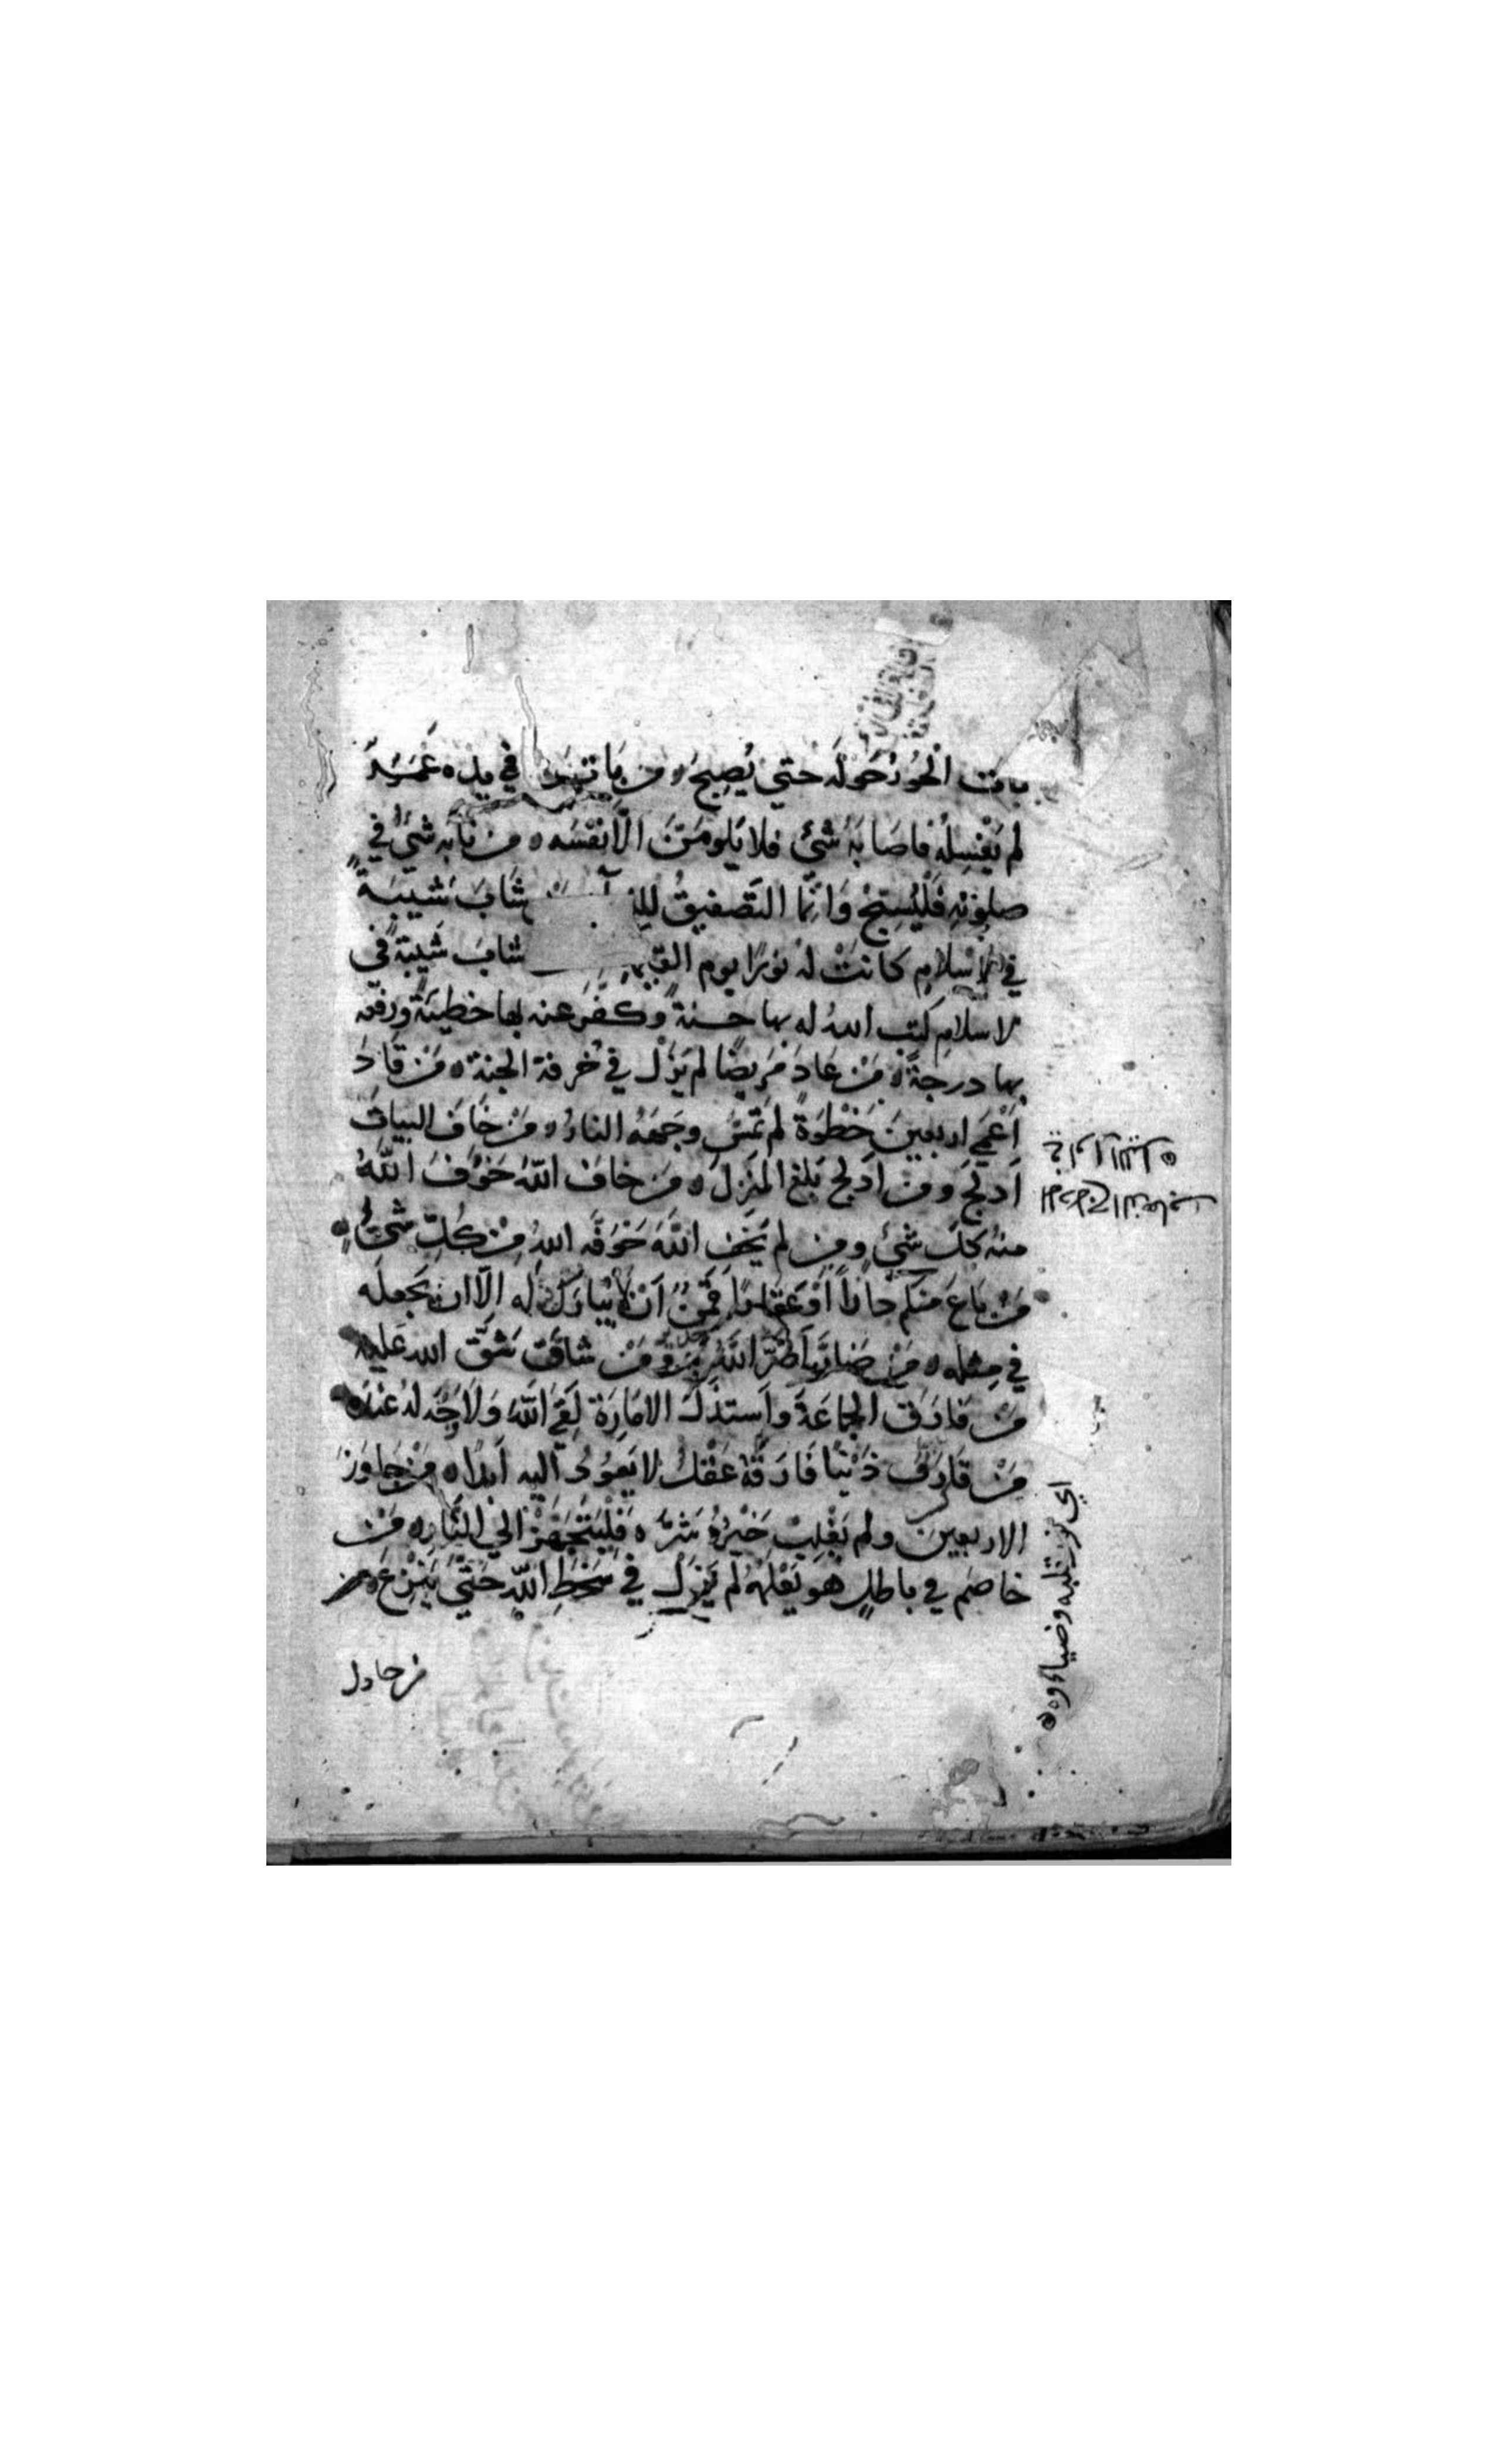 باتت الْحُورُ حَوْلَهُ حتي يُصْبِحَ ه من بَاتَ وَ في يده غَمَرٌ
لم يَغْسِلْهُ فاصَابَهُ شَئٌ فلا يَلُومَنَّ الَّا نَفْسَه ه من نَابَه شَئٌ في
صلوته فَلْيُسبّحْ وَانمَّا التَّصْفيقُ شَابَ شَيْبَةً
في الاسْلامِ كانَتْ له نورًا يوم شابَ شَيْبَةً في
الاسلام كتب اللهُ له بها حسنةً وكَفَّرَ عنه بها خطيئَةً ورفعه
بها درجةً ه مَنْ عَادَ مَرِيضًا لم يَزَلْ في خُرفة الجنة ه مَنْ قَادَ
اَعْمَي اربعينَ خَطْوَةً لم تَمَسَّ وجهَهُ النارُ ه مَنْ خَافَ البَيَاتَ
اَدلَجَ ومن اَدلَج بَلَغ المنزلَ ه من خافَ اللّهَ خَوَّفَ اللّهُ
منهُ كلَّ شَئٍ ومن لم يَخَفِ اللَّهَ خَوَّفَه اللهُ مِنْ كُلِّ شَئٍ ه
مَنْ بَاعَ منكم دارًا اَوْ عَقَارًا فَقَمِنٌ اَنْ لَا يُبَارَكَ له الّا ان يَجعَلَه
في مثله ه مَنْ ضارَّ اَضَرَّ اللَّهُ به وَمَنْ شاقَّ شَقَّ الله عَليه
مَنْ فارَقَ الجماعَةَ واَستذَلَّ الامَارَةَ لَقِيَ اللّهَ وَلَا وَجْهَ لهُ عندَه ه
مَنْ قارَفَ ذَنْبًا فَارَقَهُ عَقْلٌ لا يَعُودُ اليه اَبدًا ه مَنْ جاوَزَ
الاربعينَ ولم يَغْلِبْ خَيْرُهُ شَرَّه فَلْيَتَجَهَّزْ الي النَّارِ ه مَنْ
خاصَم في باطلٍ هو يَعْلَمُهُ لَم يَزَلْ في سَخَطِ اللّهِ حَتَّي يَنْزِعَ ه من
اي نور قلبه وضياءوه